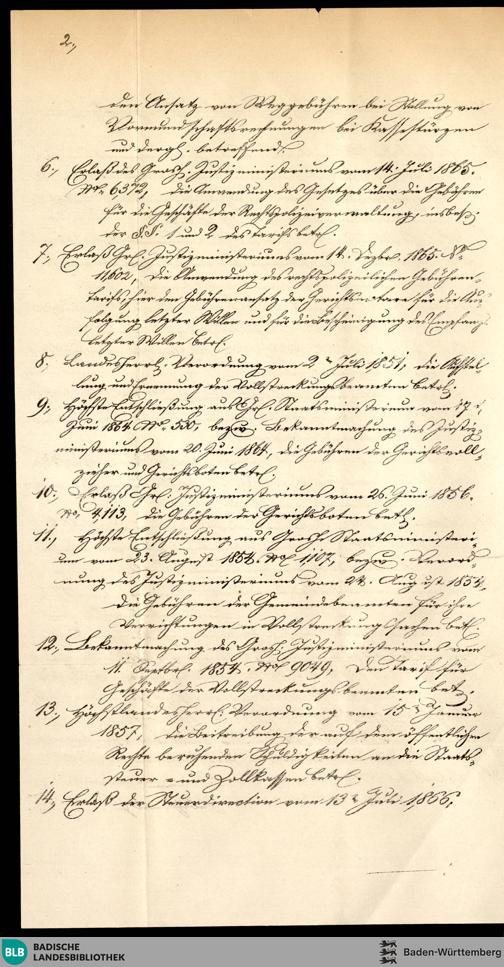 2.,
den Ansatz von Weggebühren bei Stellung von
Vormundschaftsrechnungen bei Kassestürzen
und dergl. betreffend.
6., Erlaß des Grosh. Justizministeriums vom 14. Juli 1865.
No. 6372, die Anwendung des Gesetzes über die Gebühren
für die Geschäfte der Rechtspolizeiverwaltung, insbes.
der §.§. 1 und 2 des Tarifs betr.
7., Erlaß Gr. Justizministeriums vom 14. Dezbr. 1865. No.
11,602, die Anwendung des rechtspolizeilichen Gebühren-
tarifs, hier den Gebührenansatz der Gerichtsnotare für die
letzter Willen und für die Bescheinigung des Empfangs
letzter Willen betr.
8., Landesherrl. Verordnung vom 2. Juli 1851, die
und der Vollstreckungsbeamten betr.
9., Höchste Entschließung aus Gr. Staatsministerium vom 17.
Juni 1864 No. 530, bezw. Bekanntmachung des Justiz-
ministeriums vom 20. Juni 1864, die Gebühren der Gerichtsvoll-
zieher und Gerichtsboten betr.
10., Erlaß Gr. Justizministeriums vom 26. Juni 1856.
No. 4,113, die Gebühren der Gerichtsboten betr.
11., Höchste Entschließung aus Grosh. Staatsministeri-
um vom 23. August 1854. No. 1,107, bezw. Verord-
nung des Justizministeriums vom 24. August 1854,
die Gebühren der Gemeindebeamten für ihre
Verrichtungen in Vollstreckungssachen betr.
12., Bekanntmachung des Grosh. Justizministeriums vom
11. Septbr. 1854. No. 9049, den Tarif für
Geschäfte der Vollstreckungsbeamten betr.
13., Höchstlandesherrl. Verordnung vom 15. Januar
1857, die Beitreibung der auf dem öffentlichen
Rechte beruhenden Schuldigkeiten an die Staats-
steuer- und Zollkassen betr.
14., Erlaß der Steuerdirection vom 13. Juli 1,866,
BLB
BADISCHE
LANDESBIBLIOTHEK
Baden-Württemberg